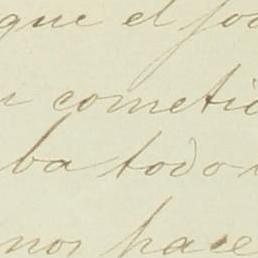 que el
cometid
ba todo
nos hace